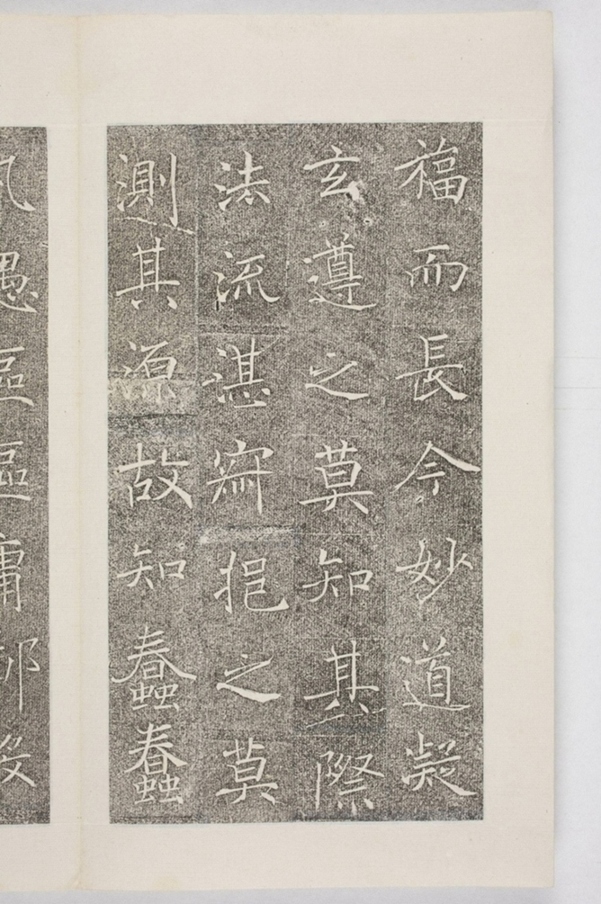 福而長今妙道凝
玄遵之莫知其際
法流湛寂挹之莫
測其源故知蠢蠢
凡愚區區庸鄙投